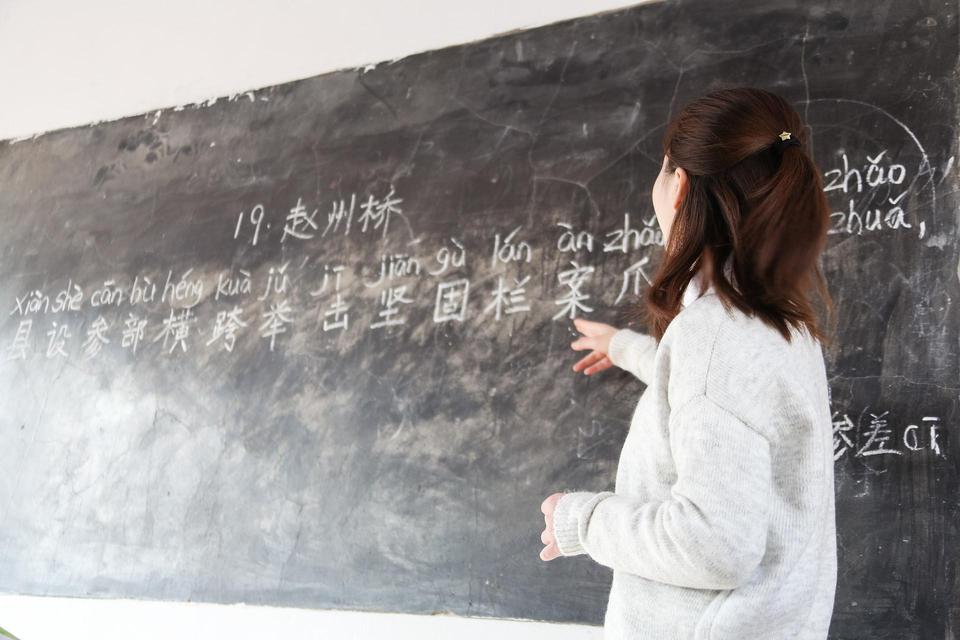 19. 赵州桥
xiàn shè cān bù héng kuà jǔ jī jiān gù lán àn zhǎo
县 设 参 部 横 跨 举 击 坚 固 栏 案 爪
zhǎo
zhuǎ,
参差 cī